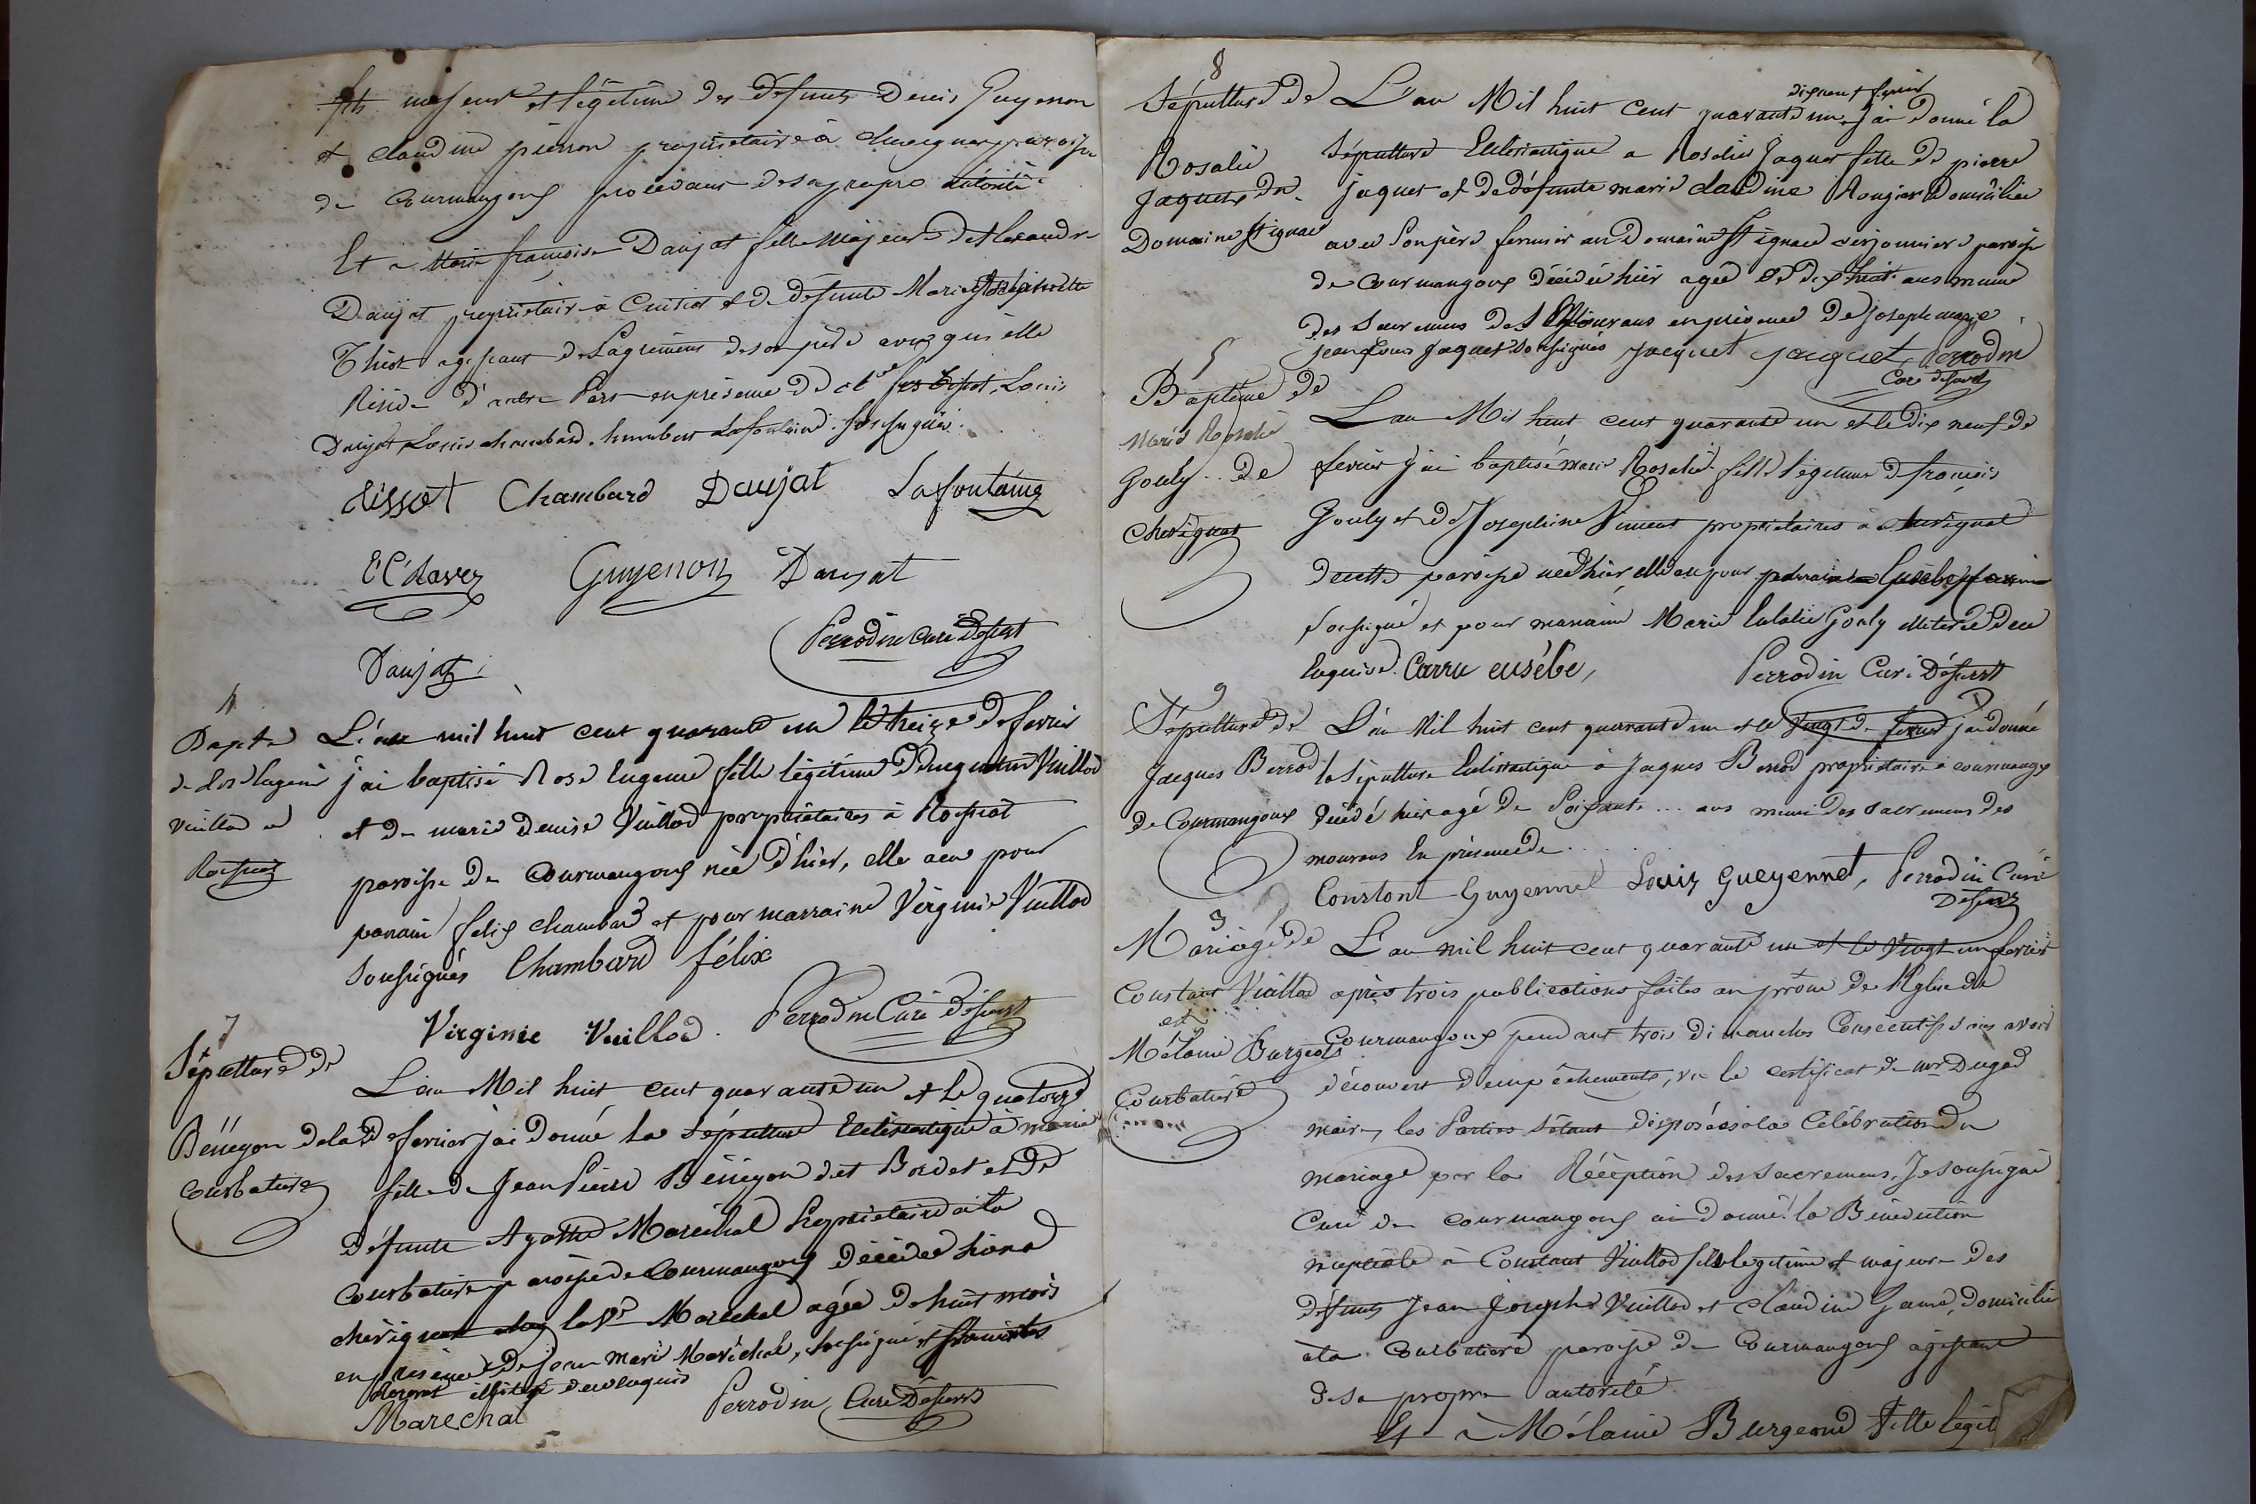 fils majeur et légitime des défunts Denis Guyenon
et claudine pierron propriétaire à chevignat paroisse
de Courmangoux procedant de sa propre autorité
Et à Marie françoise Daujat fille majeure d'Alexandre
Daujat propriétaire à Cuisiat et de défunte Marie Josephette
Thiost agissant de l'agrément de son père avec qui elle
Réside d'autre Part en présence de Tissot, Louis
Daujat, Louis chambard, humbert Lafontaine soussignés.
Tissot Chambard Daujat Lafontaine
Guyenon Daujat
Perrodin Curé Desservt
Daujat
Bapte
de Rose Eugenie
Vuillod de
Rossiat
L'an mil huit cent quarante un le treize de fevrier
j'ai baptisé Rose Eugenie fille légitime Vuillod
et de marie denise Vuillod propriétaires à Rossiat
paroisse de Courmangoux née d'hier, elle a eu pour
parrain felix chambard et pour marraine Virginie Vuillod
soussignés Chambard félix
Virginie Vuillod. Perrodin Curé Desservt
7
Sépulture de
Bénégon de la
Courbatière
L'an Mil huit cent quarante un et le quatorze
de fevrier j'ai donné la sépulture Ecclésiastique à marie
fille de Jean Pierre Bénégon dit Bordet et de
défunte Agathe Maréchal Propriétaire à la
Courbatière paroisse de Courmangoux décédée hier à
chevignat chez la Vve Maréchal agée de huit mois
en présence de Jean Marie Maréchal, soussigné et
illitéré de ce enquis
Marechal Perrodin Curé Desservt
8
Sépulture de
Rosalie
Jaquet du
Domaine St ignace
L'an Mil huit cent quarante un dixneuf fevrier j'ai donné la
sépulture Ecclésiastique a Rosalie Jaquet fille de pierre
jaquet et de défunte marie claudine Rougier Domiciliée
avec son père fermier au Domaine St ignace paroisse
de Courmangoux décédée hier agée de dix huit ans munie
des Sacremens des Mourans en présence de joseph marie
jean louis Jaquet soussignés jacquet jacquet Perrodin
Curé desservt
5
Baptême de
Marie Rosalie
Gouly de
Chevignat
L'an Mil huit cent quarante un et le dix neuf de
fevrier j'ai baptisé marie Rosalie fille légitime de françois
Gouly et de Josephine Vincent propriétaires à chevignat
de cette paroisse née hier elle a eu pour parrain Eusèbe
soussigné et pour marraine Marie Eulalie Gouly illiterée de ce
Enquise. Carru eusébe, Perrodin Curé Desservt
9
Sépulture de
Jacques Berrod
de Courmangoux
L'an Mil huit cent quarante un et le vingt de fevrier j'ai donné
la Sépulture Ecclésiastique à Jaques Berrod propriétaire à courmangoux
décédé hier agé de Soixante ... ans muni des sacremens des
mourans En présence de . . .
Constant Guyennet Louis Gueyennet, Perrodin Curé
Desservt
3
Mariage de
Constant Vuillod
et
Mélanie Burgeoud
Courbatière
L'an mil huit cent quarante un et le vingt un fevrier
après trois publications faites au prône de l'Eglise de
Courmangoux pendant trois dimanches Consécutifs sans avoir
découvert d'empêchements, vu le certificat de mr Dugad
maire, les Parties s'étant disposées à la Célébration du
mariage par la Réception des Sacremens, Je soussigné
Curé de Courmangoux ai donné la Bénédiction
nuptiale à Constant Vuillod fils légitime et majeur des
défunts Jean Joseph Vuillod et claudine Gamé, domicilié
à la Courbatière paroisse de Courmangoux agissant
de sa propre autorité
Et à Mélanie Burgeoud fille légit